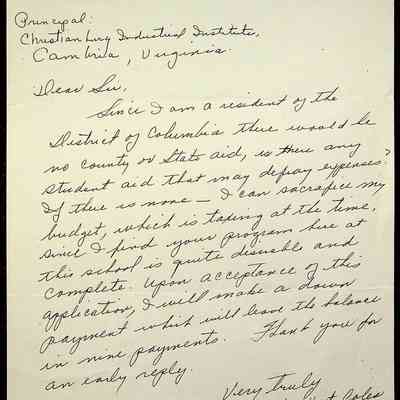 Principal:
Christiansburg Industrial Institute,
Cambria, Virginia.
Dear Sir,
Since I am a resident of the
District of Columbia there would be
no county or State aid, is there any
student aid that may defray expenses?
If there is none — I can sacrafice my
budget, which is taxing at the time,
since I find your program here at
this school is quite desirable and
complete. Upon acceptance of this
application, I will make a down
payment which will leave the balance
in nine payments. Thank you for
an early reply.
Very truly
Coles